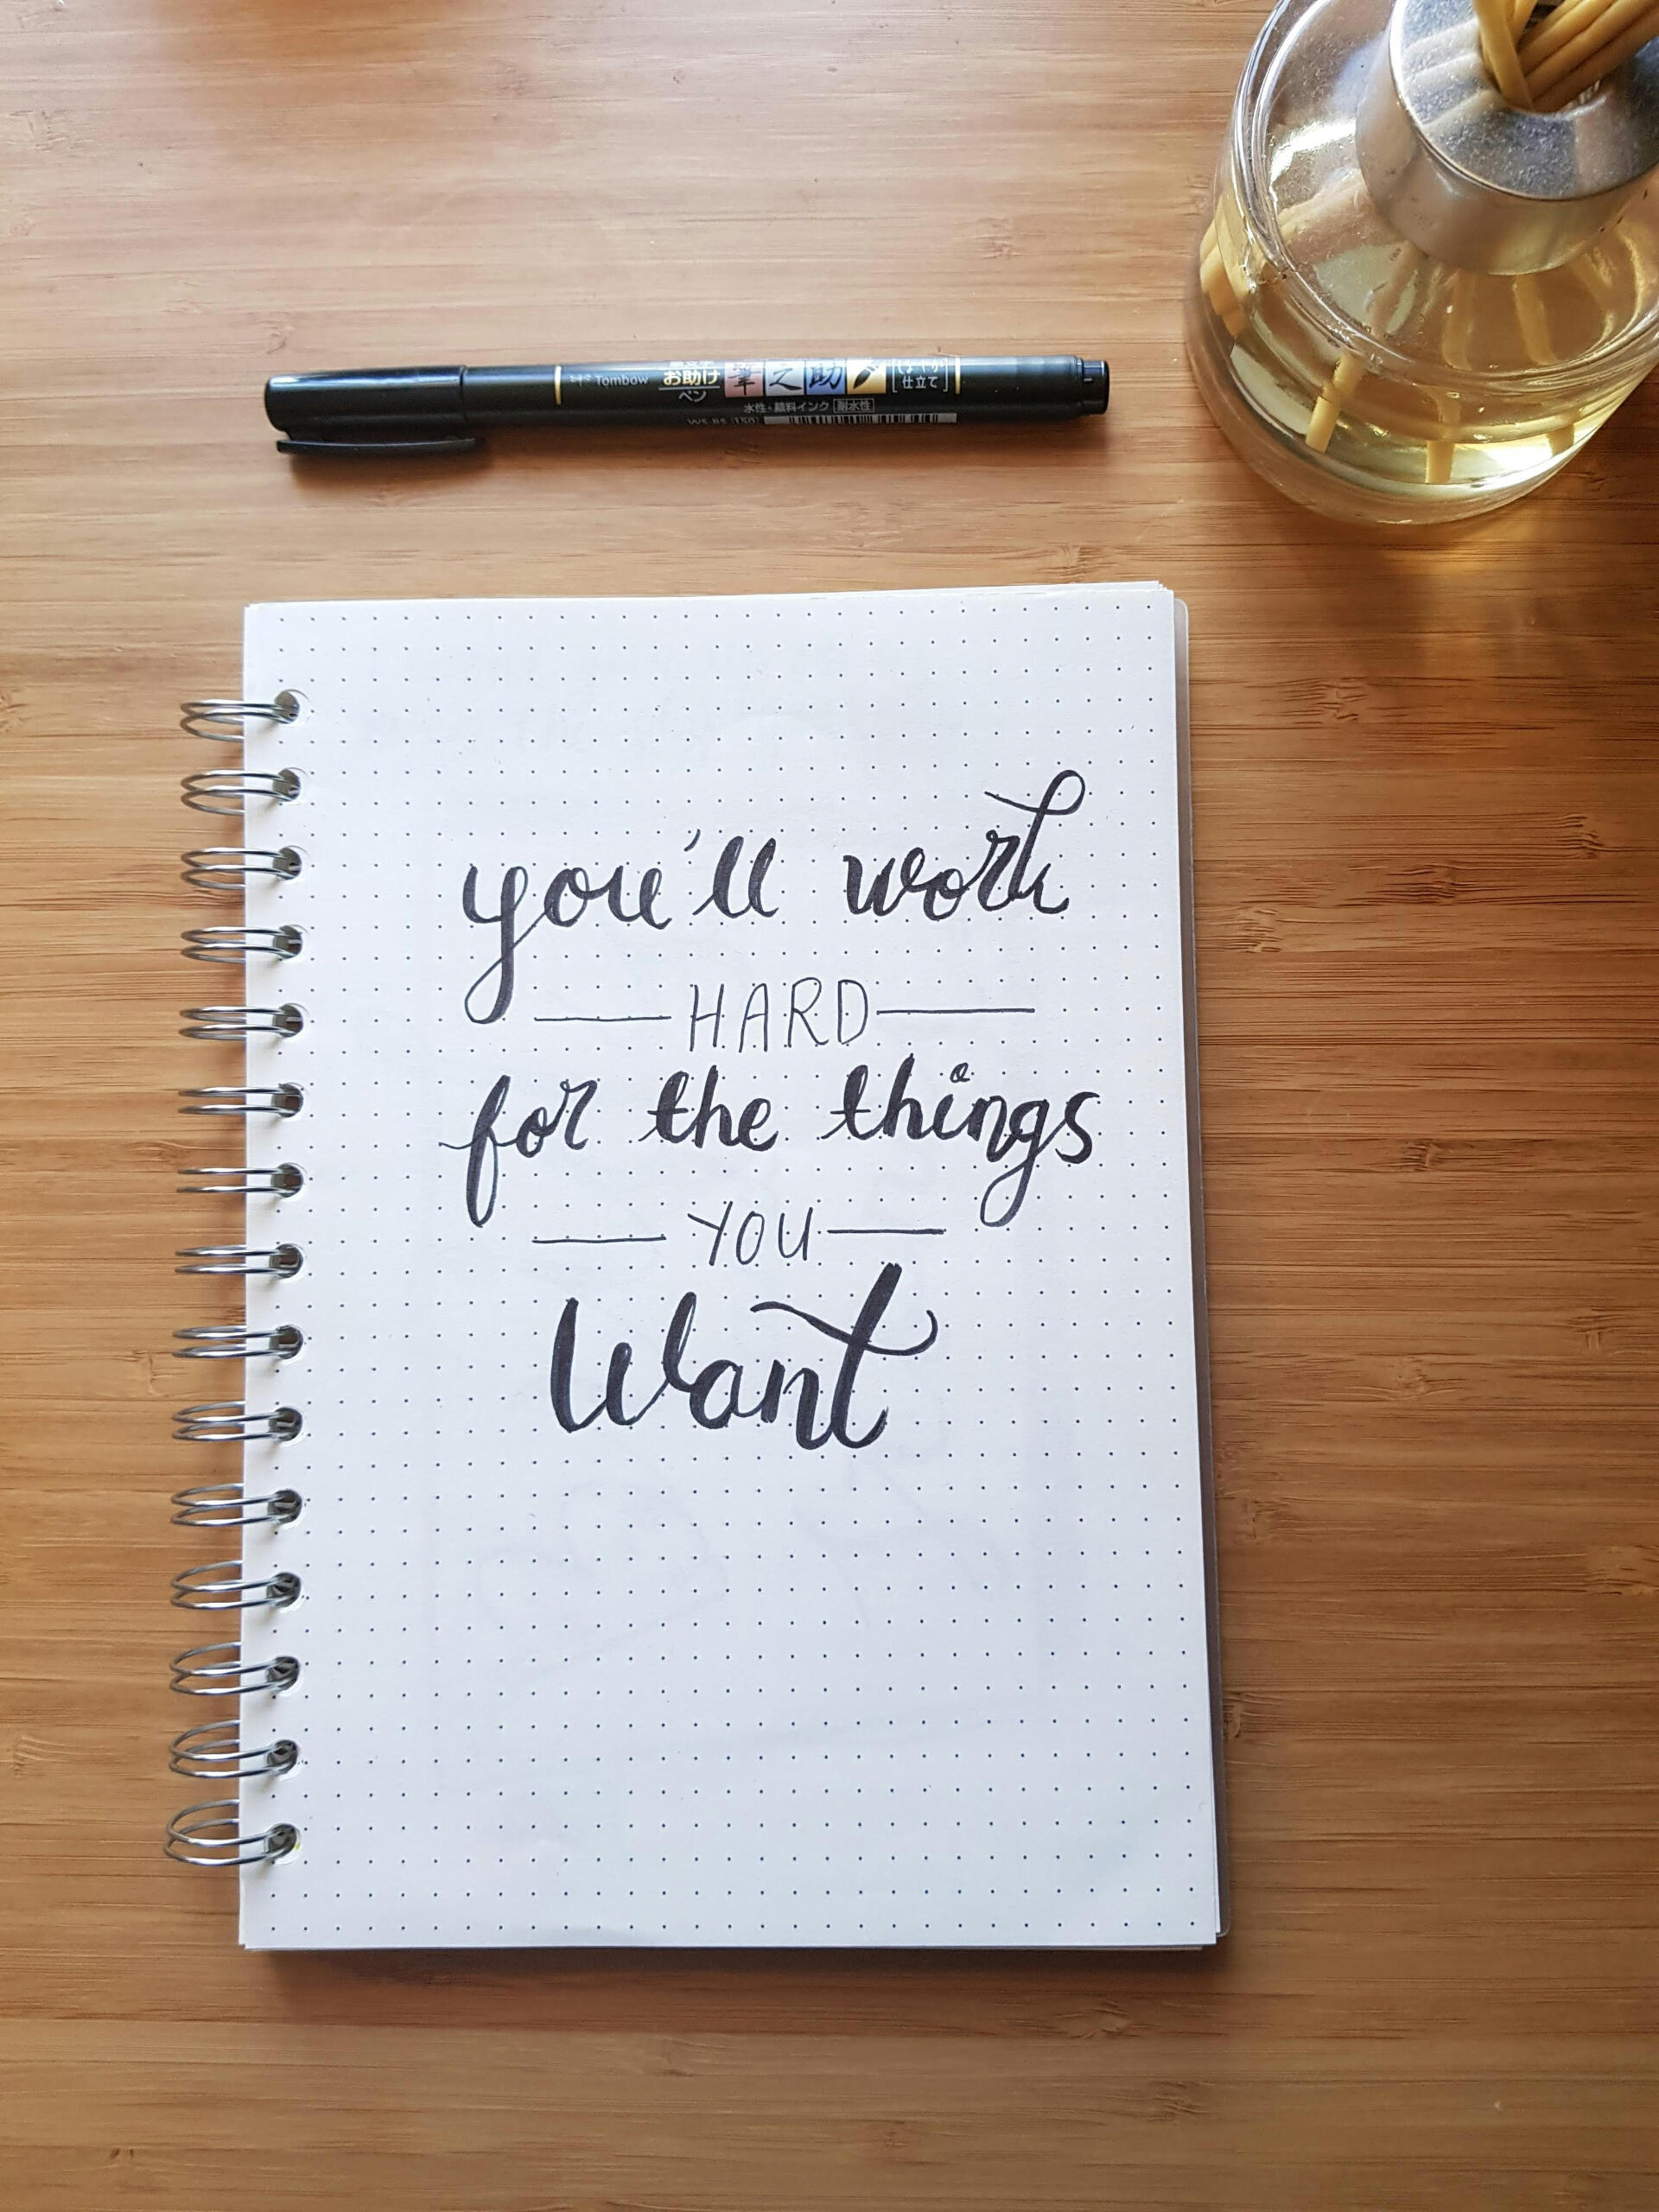 Tombow
お助け
ペン
筆之助
仕立て
水性・顔料インク 耐水性
you'll work
HARD
for the things
YOU
Want